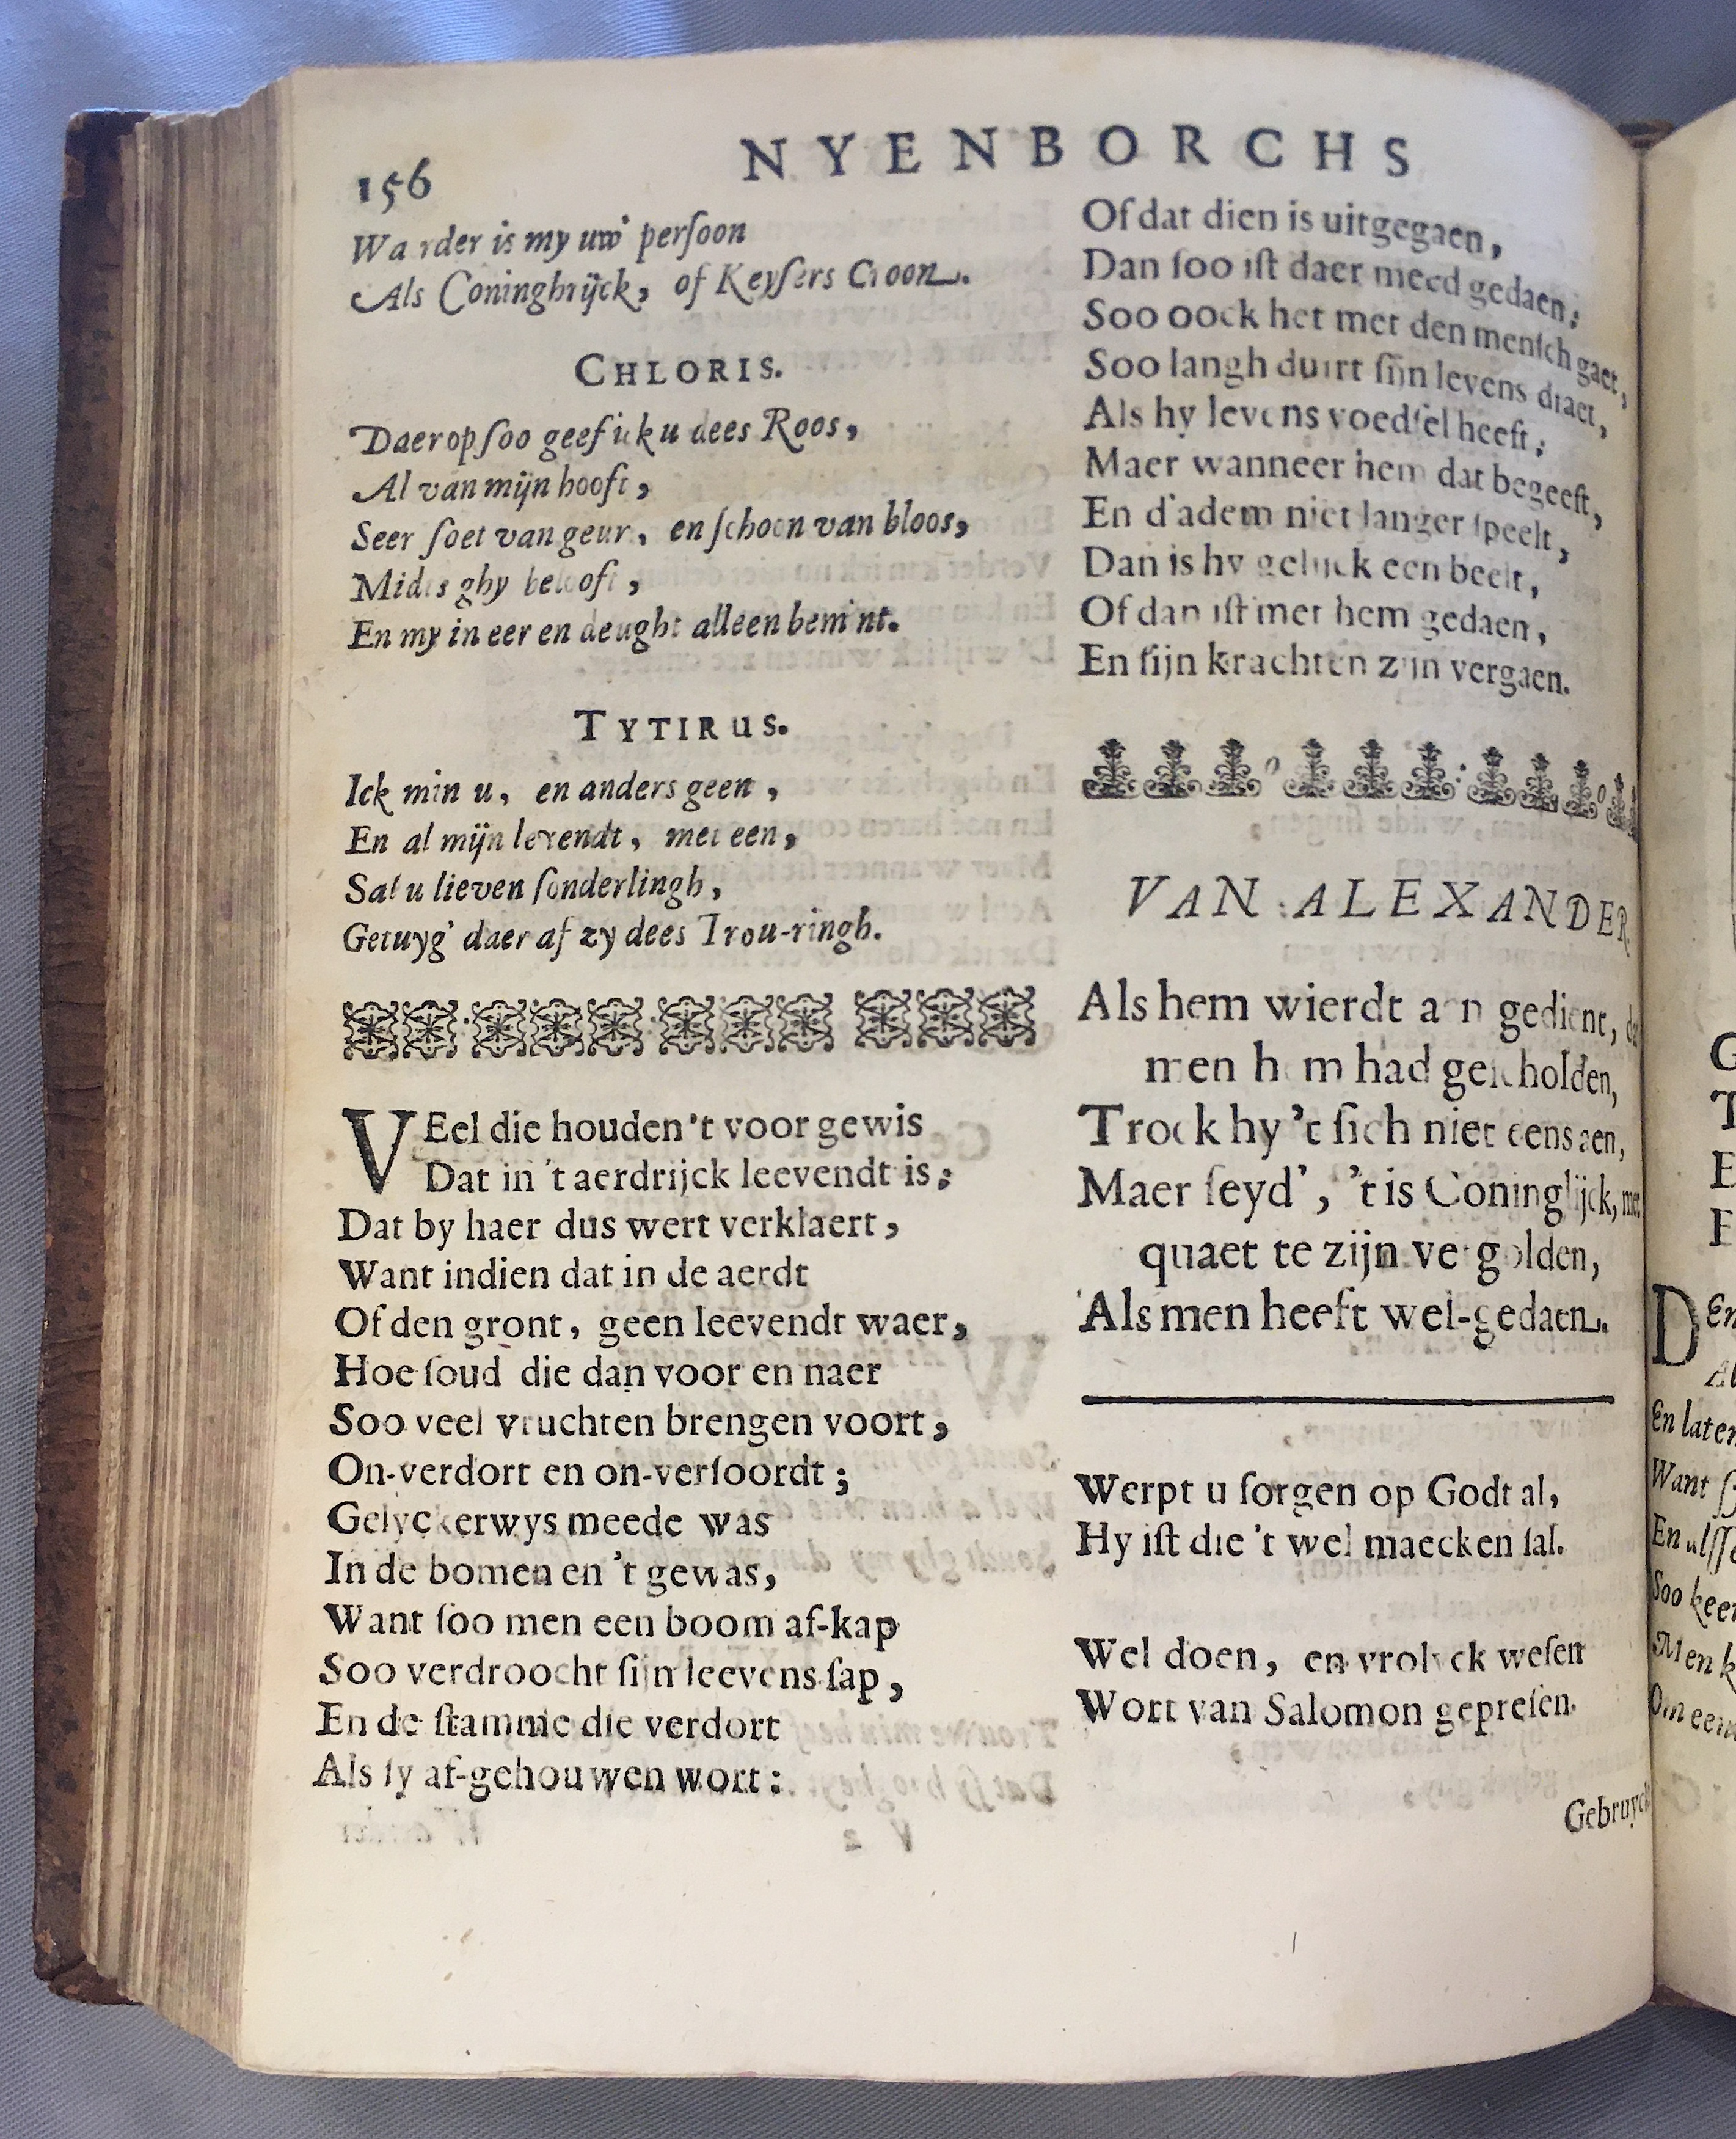 156
NYENBORCHS
Waerder is my uw' perſoon
Als Coninghrijck, of Keyſers Croon.
CHLORIS.
Daerop ſoo geef ick u dees Roos,
Al van mijn hooft,
Seer ſoet van geur, en ſchoon van bloos,
Mids ghy belooft,
En my in eer en deught alleen bemint.
TYTIRUS.
Ick min u, en anders geen,
En al mijn levendt, met een,
Sal u lieven ſonderlingh,
Getuyg' daer af zy dees Trou-ringh.
VEel die houden 't voor gewis
Dat in 't aerdrijck leevendt is;
Dat by haer dus wert verklaert,
Want indien dat in de aerdt
Of den gront, geen leevendt waer,
Hoe ſoud die dan voor en naer
Soo veel vruchten brengen voort,
On-verdort en on-verſoordt;
Gelyckerwys meede was
In de bomen en 't gewas,
Want ſoo men een boom af-kap
Soo verdroocht ſijn leevens ſap,
En de ſtamme die verdort
Als ſy af-gehouwen wort:
Of dat dien is uitgegaen,
Dan ſoo iſt daer meed gedaen;
Soo oock het met den menſch gaet,
Soo langh duirt ſijn levens draet,
Als hy levens voedſel heeft;
Maer wanneer hem dat begeeft,
En d'adem niet langer ſpeelt,
Dan is hy gelijck een beelt,
Of dan iſt met hem gedaen,
En ſijn krachten zijn vergaen.
VAN ALEXANDER
Als hem wierdt aen gedient,
men hem had geſcholden,
Trock hy 't ſich niet eens aen,
Maer ſeyd', 't is Coninglijck, met
quaet te zijn vergolden,
Als men heeft wel-gedaen.
Werpt u ſorgen op Godt al,
Hy iſt die 't wel maecken ſal.
Wel doen, en vrolyck weſen
Wort van Salomon gepreſen.
Gebruyck
En later
Want
Soo keer
Men k
Om een